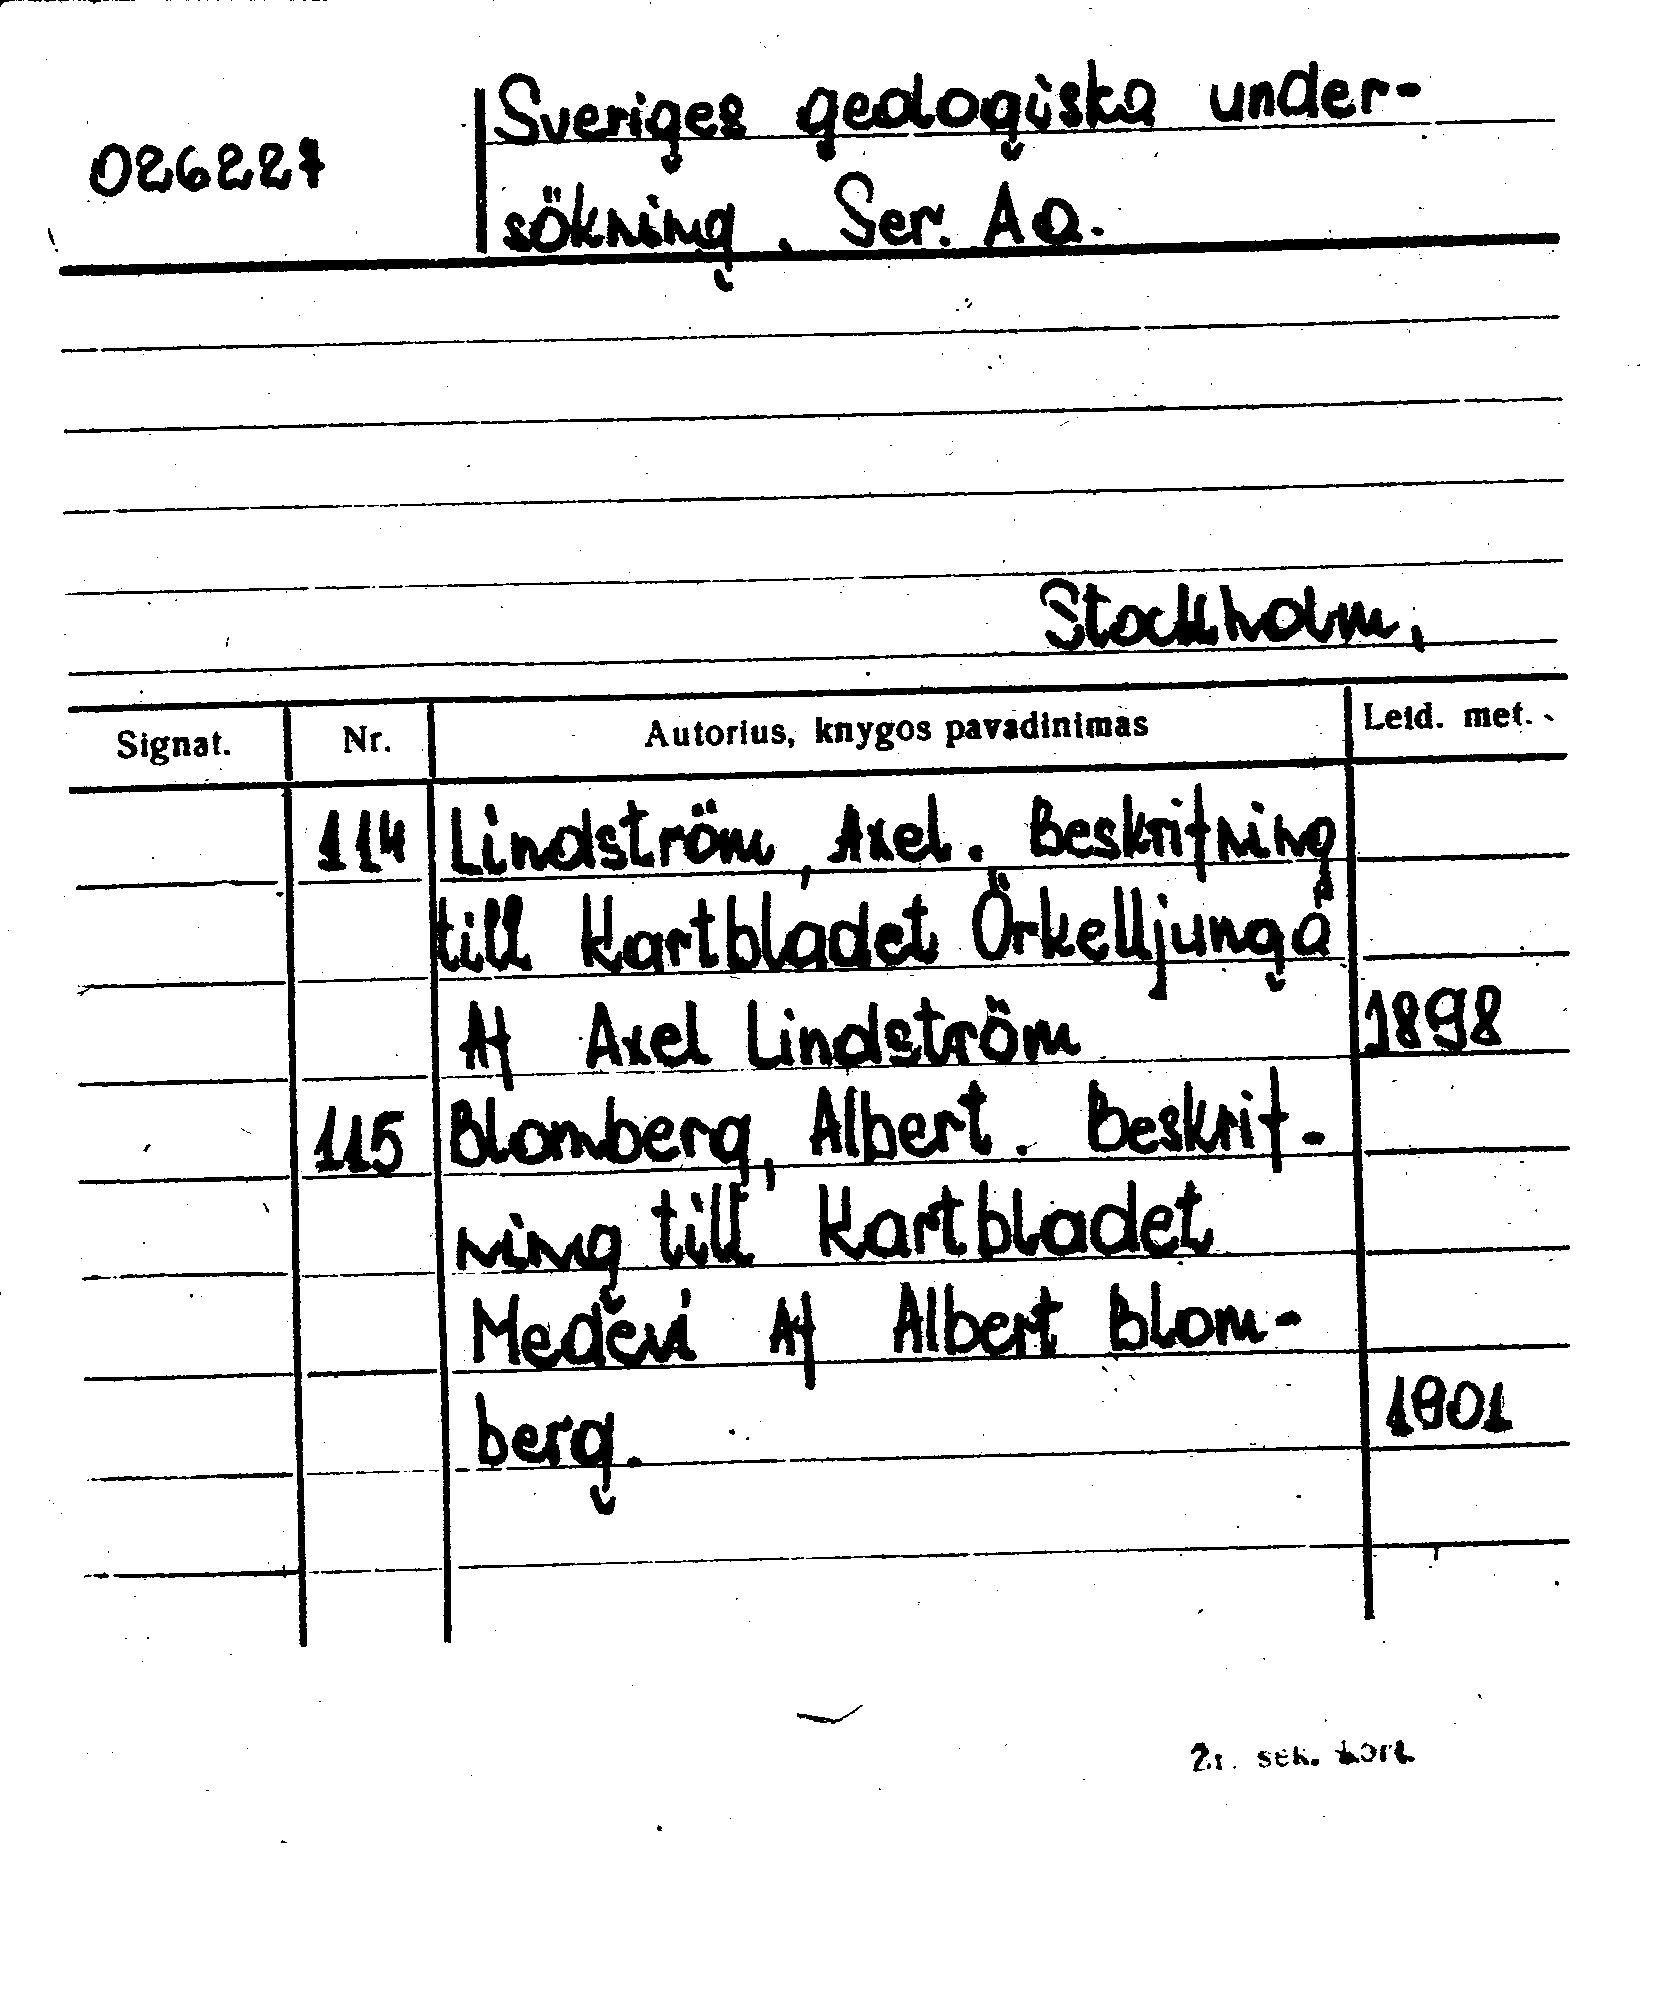 026227
Sveriges geologiska under-
sökning. Ser. Aa.
Stockholm,
Signat. Nr. Autorius, knygos pavadinimas Leid. met.
114 Lindström, Axel. Beskrifning
till Kartbladet Örkelljunga
Af Axel Lindström 1898
115 Blomberg, Albert. Beskrif-
ning till Kartbladet
Medevi Af Albert Blom-
berg. 1901
Žr. sek. kort.